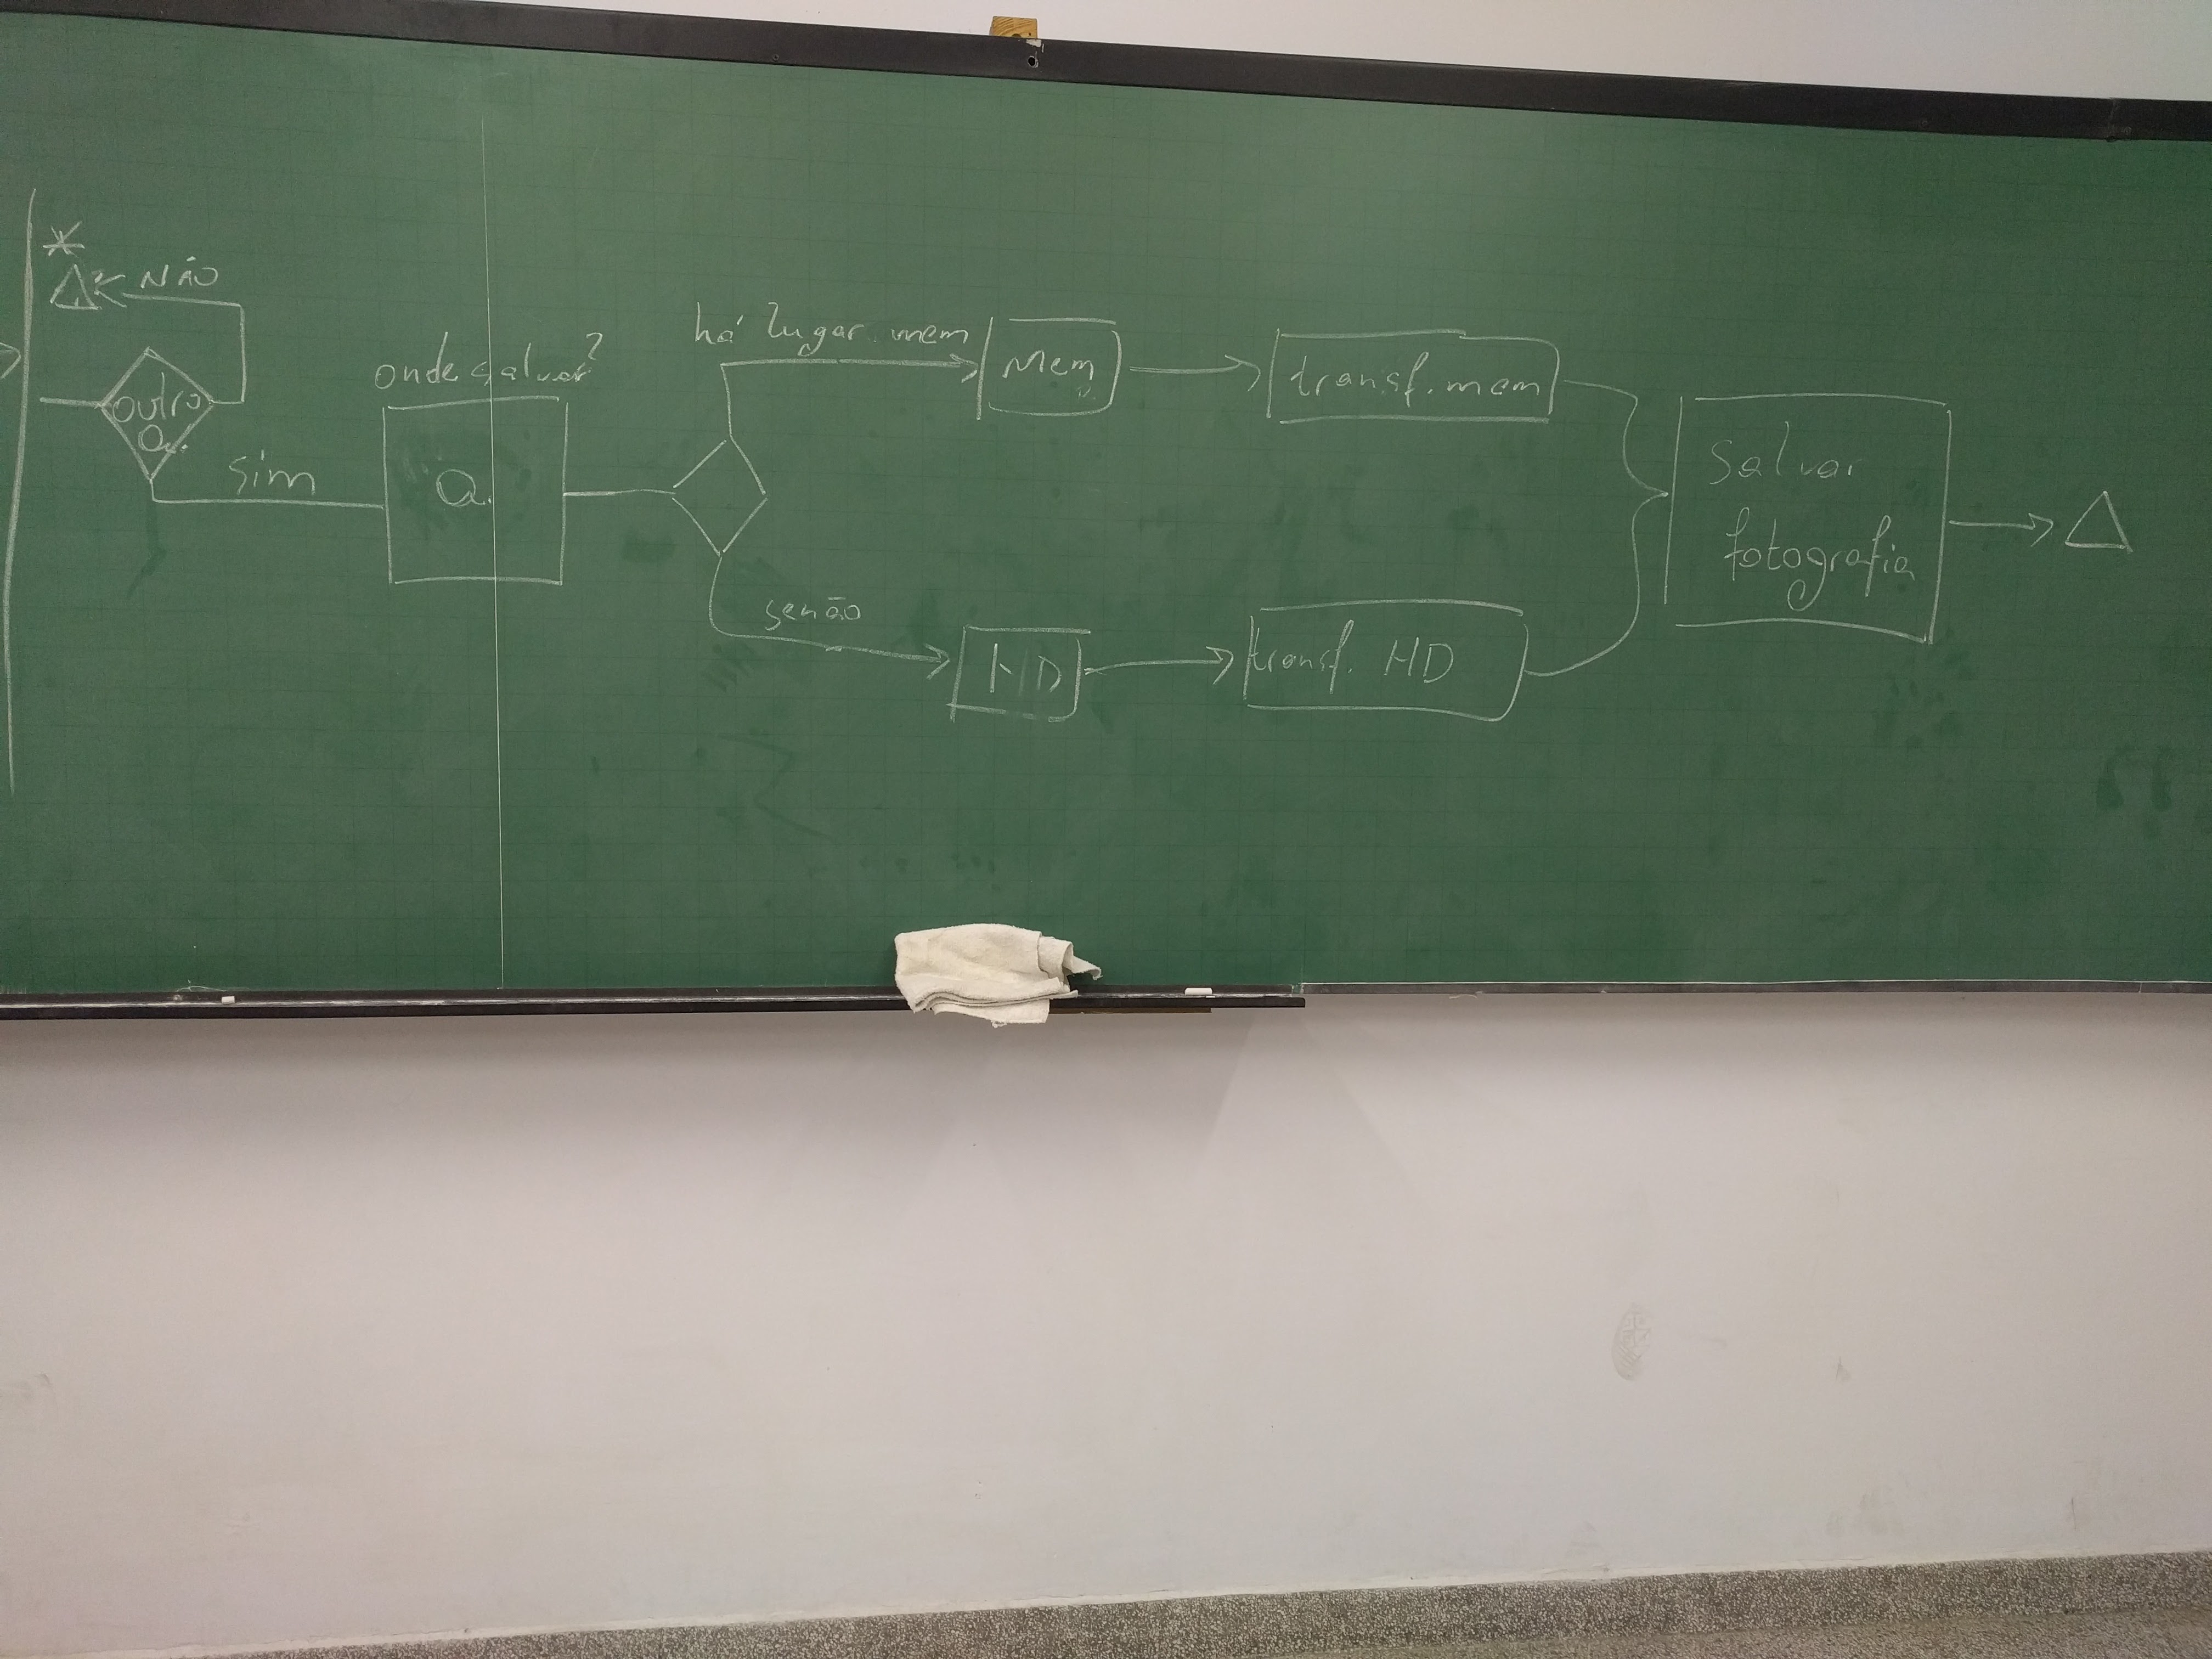 *
NÃO
outro
a.
sim
onde salvar?
a.
há lugar mem
Mem
transf. mem
senão
HD
transf. HD
Salvar
fotografia